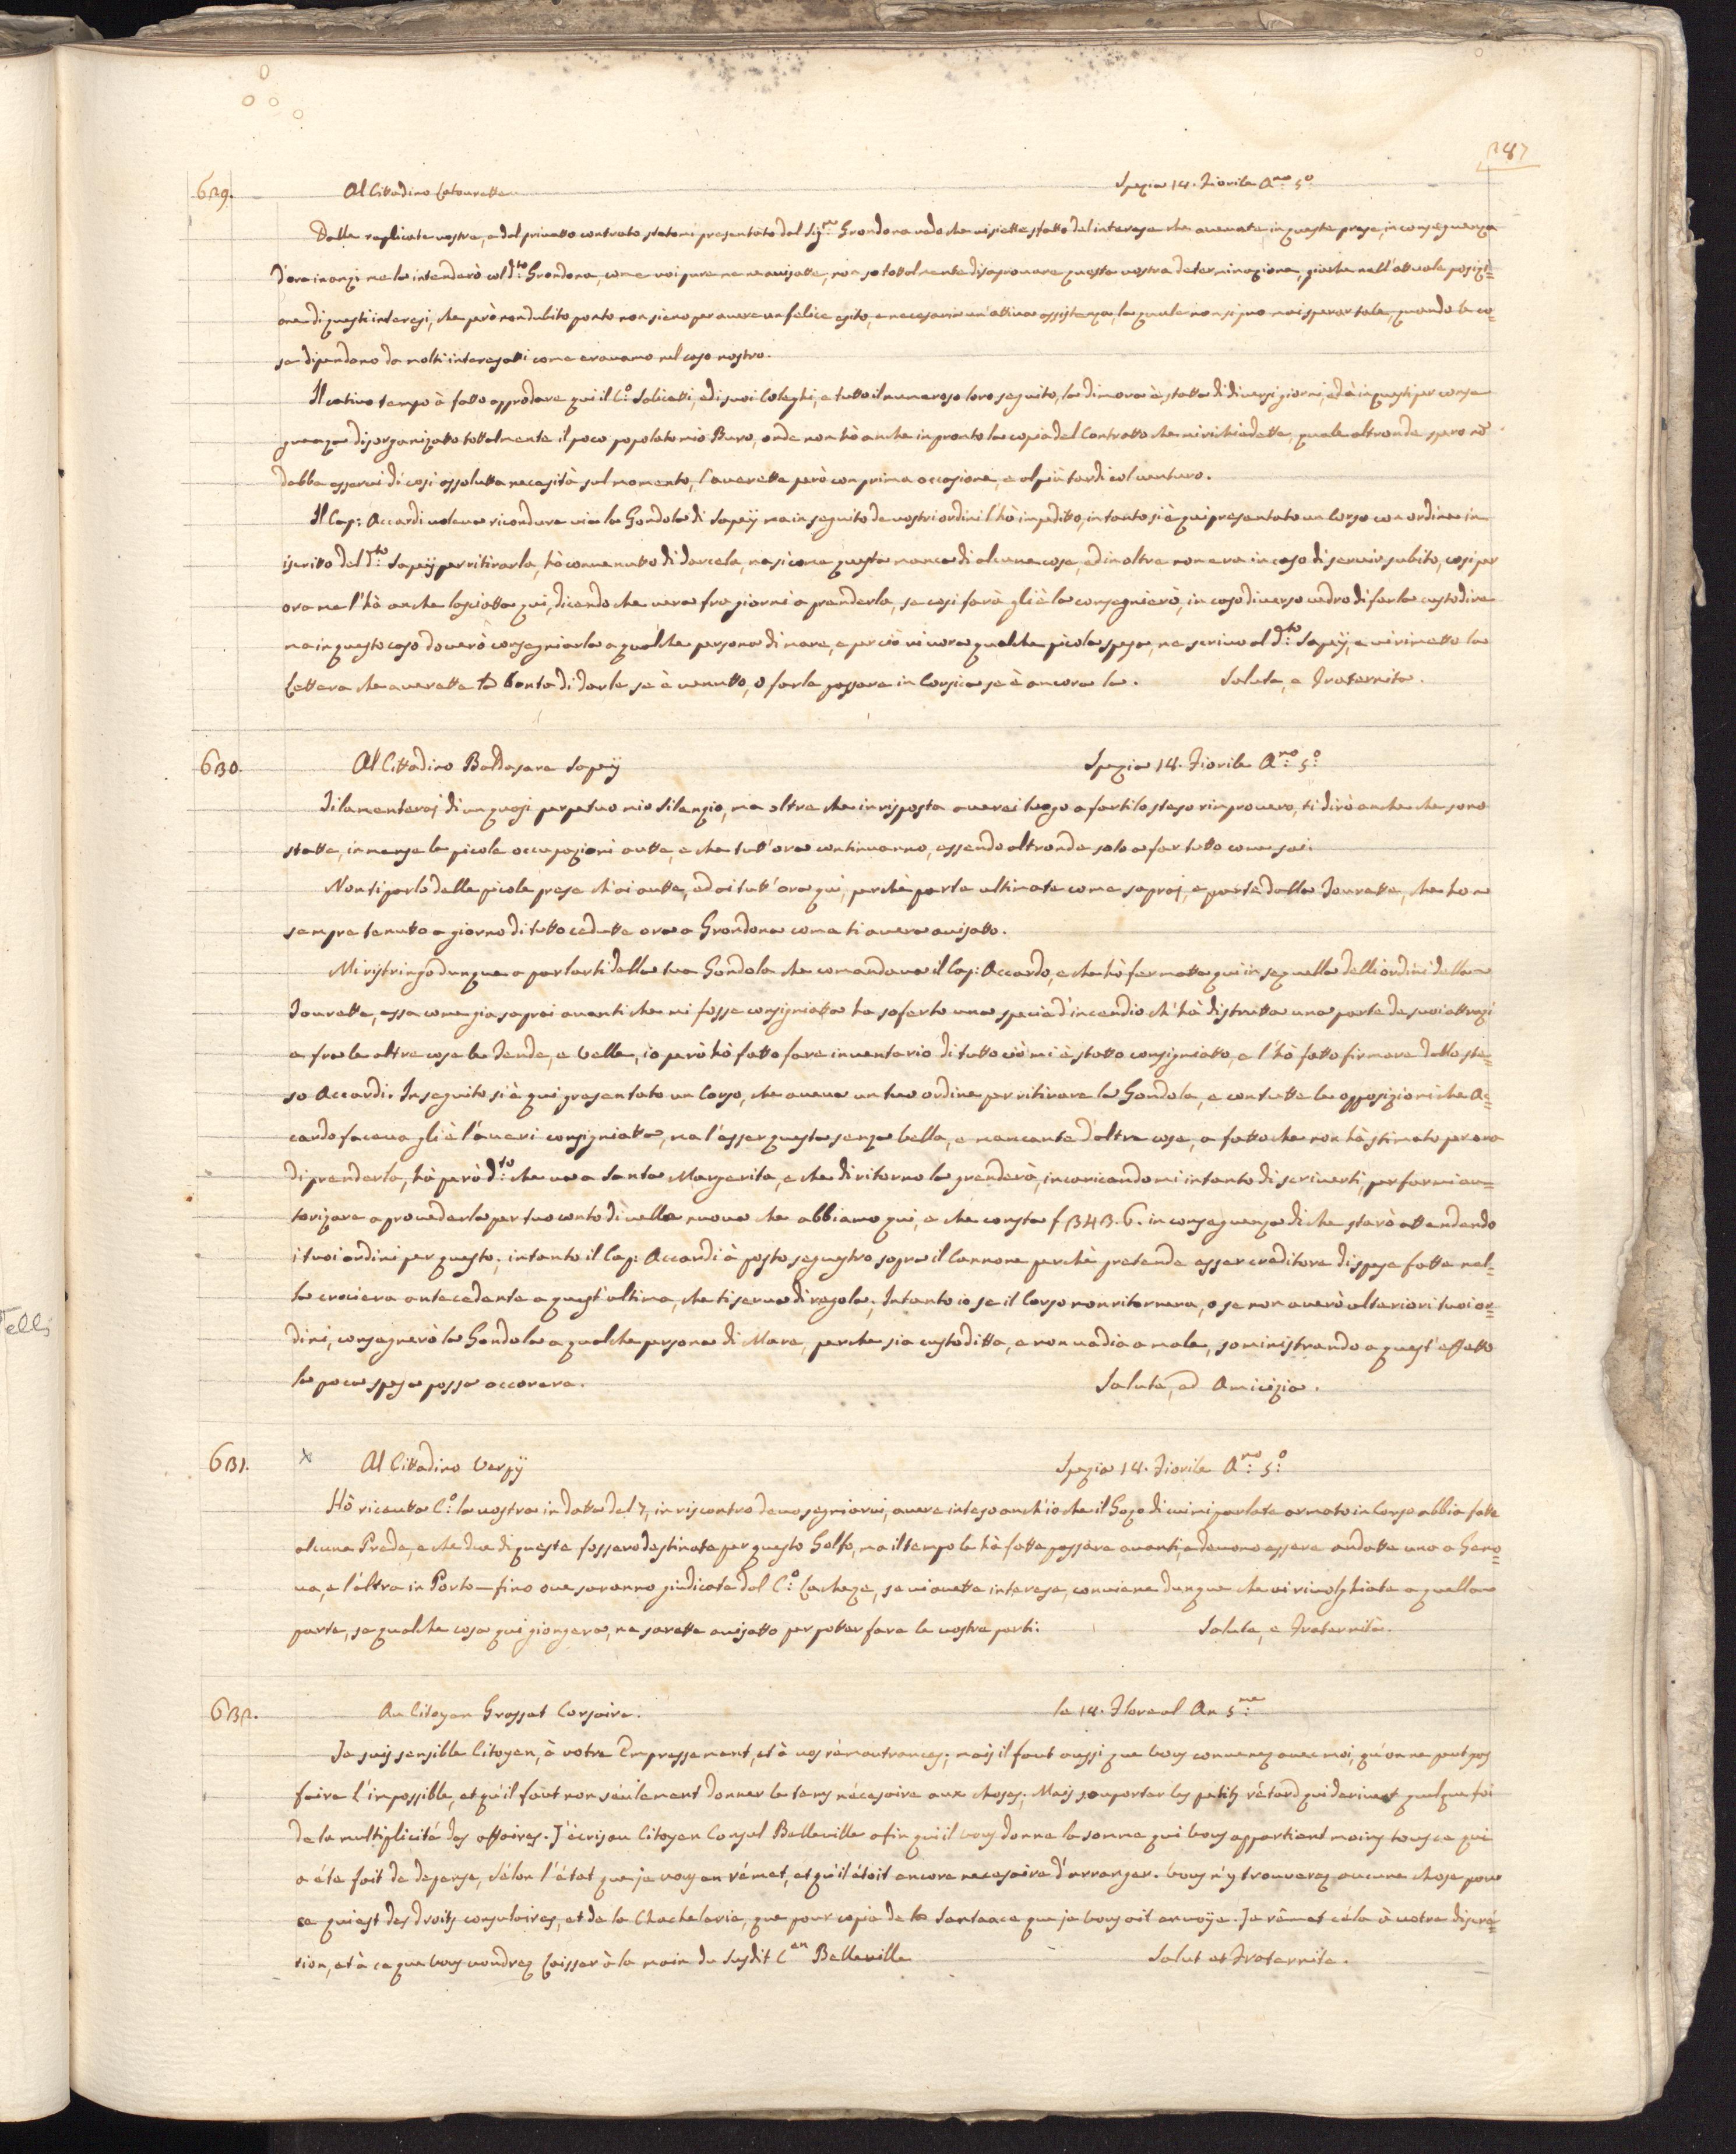 287
629. Al Cittadino Latourette Spezia 14. Fiorile Anno 5.o
Dalle replicate vostre, e dal privatto contrato statomi presentato dal Sig.re Grondona vedo che vi siette sfatto del interesse che avevate in queste prese, in conseguenza
d'ora inanzi me la intenderò col d.to Grondona, come voi pure me ne avisatte, non so tottalmente disaprovare questa vostra determinazione, giache nell'attuale posizi=
one di questi interessi, che però non dubito ponto non sieno per avere un felice esito, e necesaria un'attiva assistenza, la quale non si può mai sperar tale, quando le co=
se dipendono da molti interesatti come eravamo nel caso nostro.
Il cativo tempo à fatto approdare qui il C.o Salicatti, ed i suoi Coleghi, e tutto il numeroso loro seguito, la dimora è statta di diversi giorni, ed à in questi per conse
guenza disorganizatto tottalmente il poco popolato mio Buro, onde non hò anche in pronto la copia del Contratto che mi richiedette, quale altronde spero nõ
debba esservi di cosi assolutta necesità sul momento, l'averette però con prima occasione, e al più tardi col venturo.
Il Cap: Accardi voleva ricondure via la Gondola di Sapey ma in seguito de vostri ordini l'hò impeditto, in tanto si è qui presentato un Corso con ordine in
iscritto del d.to Sapey per ritirarla, hò convenutto di darcela, ma sicome questa manca di alcune cose, ed inoltre non era in caso di servir subito, cosi per
ora me l'hà anche lasciatta qui, dicendo che verà fra giorni a prenderla, se cosi farà gli è la consegnierò, in caso diverso vedrò di farla custodire
ma in questo caso doverò consegniarla a qualche persona di mare, e perciò vi vorà qualche picola spesa, ne scrivo al d.to Sapey, e vi rimetto la
Lettera che averette la bontà di darle se è venutto, o farla passare in Corsica se è ancora là. Salute, e Fraternità.
630. Al Cittadino Baldasare Sapey Spezia 14. Fiorile Anno 5.o
Ti lamenterai di un quasi perpetuo mio silenzio, ma oltre che in risposta averei luogo a farti lo steso rimprovero, ti dirò anche che sono
statte, immense le picole occupazioni avutte, e che tutt'ora continuanno, essendo altronde solo a far tutto come sai.
Non ti parlo delle picole prese ch'ai avutte, ed ai tutt'ora qui, perchè parte ultimate come saprai, e parte dalla Tourette, che ho
sempre tenutto a giorno di tutto cedutte ora a Grondona come ti averà avisatto.
Mi ristringo dunque a parlarti della tua Gondola che comandava il Cap: Accardo, e che hò fermatta qui in sequella delli ordini della
Tourette, essa come gia saprai avanti che mi fosse consigniatta ha soferto una specie d'incendio ch'hà distrutta una parte de suoi attrezi
e fra le altre cose le Tende, e Velle, io però hò fatto fare inventario di tutto ciò mi è statto consigniatto, e l'hò fatto firmare dallo ste=
so Accardi. In seguito si è qui presentato un Corso, che aveva un tuo ordine per ritirare la Gondola, e con tutte le opposizioni che Ac=
cardo faceva gli è l'averi consigniatta, ma l'esser questa senza Vella, e mancante d'altre cose, a fatto che non hà stimato per ora
di prenderla, hà però d.to che va a Santa Margerita, e che di ritorno la prenderà, incaricandomi intanto di scriverti, per farmi au=
torizare a provederla per tuo conto di vella nuova che abbiamo qui, e che consta f 343.6. in conseguenza di che starò attendendo
i tuoi ordini per questo; intanto il Cap: Accardi à posto sequestro sopra il Cannone perchè pretende esser creditore di spese fatte nel=
la crociera antecedente a quest'ultima, che ti serva di regola. Intanto io se il Corso non ritornerà, o se non averò ulteriori tuoi or=
dini, consegnerò la Gondola a qualche persona di Mare, perche sia custoditta, e non vadia a male, soministrando a quest'effetto
la poca spesa possa accorere. Salute, ed Amicizia.
631. X Al Cittadino Verpy Spezia 14. Fiorile Anno 5.o
Hò ricevutta C.o la vostra in datta del 7, in riscontro devo segniarvi, avere inteso anch'io che il Gozo di cui mi parlate armato in Corso abbia fatte
alcune Prede, e che due di queste fossero destinate per questo Golfo, ma il tempo le hà fatte passare avanti, e devono essere andatte una a Geno=
va, e l'altra in Porto-fino ove saranno giudicate dal C.o Lacheze, se vi avette interese, conviene dunque che vi rivolghiate a quella
parte, se qualche cosa qui giongerà, ne sarette avisatto per potter fare le vostre parti. Salute, e Fraternità.
632. Au Citoyen Grasset Corsaire. le 14. Floreal An 5.me
Je suis sensible Citoyen, à votre Empressement, et à vos rémontrances; mais il faut aussi que vous convenez avec moi, qu'on ne peut pas
faire l'impossible, et qu'il faut non séulement donner le tems nécesaire aux choses, Mais souporter les petits rétard qui derivent quelque foi
de la multiplicité des affaires. J'écris au Citoyen Consul Belleville afin qui il vous donne la somme qui vous appartient moins tous ce qui
a été fait de depense, sélon l'état que je vous en rémet, et qu'il étoit encore necesaire d'arranger. Vous n'y trouverez aucune chose pour
ce qui est des droits consulaires, et de la Chachelerie, que pour copie de la Santance que je vous ait envoÿe. Je rémet céla à votre discré=
tion, et à ce que vous voudrez laisser à la main du Susdit C.en Belleville Salut et Fraternite.